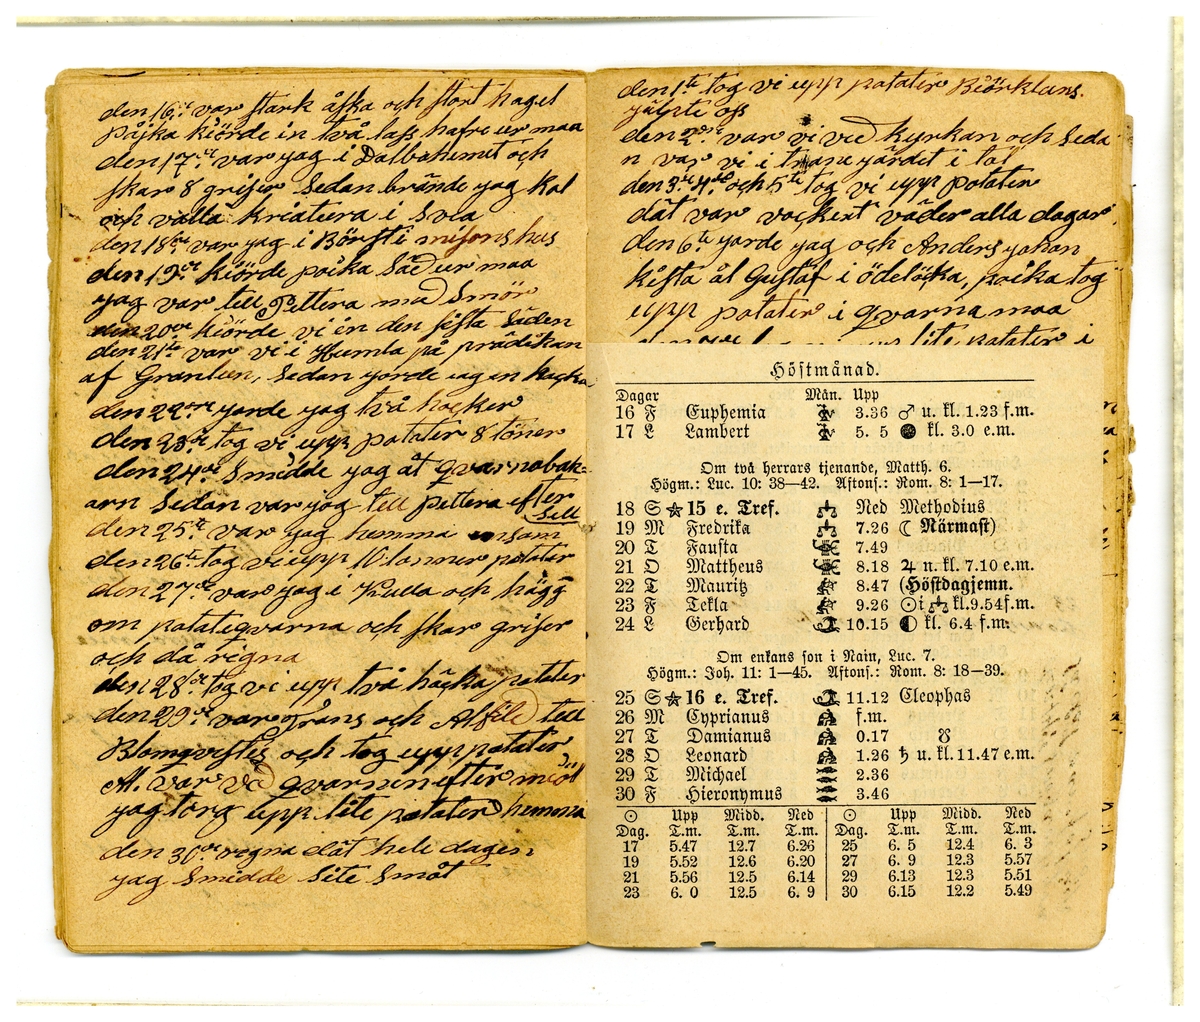 den 16de var stark åska och stort hagel
påjka kiörde in två lass hafre ur maa
den 17de var yag i Dalbahemet och
skar 8 griser Sedan brände yag Kol
och valla kriatura i Svia
den 18de var yag i Börsti misonshus
den 19de kiörde poika Säd ur maa
yag var till Pettera mad Smör
den 20de kiörde vi in den sista Säden
den 21te var vi i Humla på prädikan
af Granlien, Sedan yorde iag en hacka
den 22dre yorde yag två hacker
den 23de tog vi upp patater 8 töner
den 24de Smidde yag åt qvarnabak-
arn Sedan var yag till pettera efter
Sill
den 25te var yag hemma ensam
den 26te tog vi upp 10 tonner patater
den 27de var yag i Kulla och högg
om patateqvarna och skar griser
och då rigna
den 28de tog vi upp två häcka patater
den 29de var Frans och Alfild till
Blomqvistes och tog upp patater
A. var vid qvarnen efter miöl
yag torg upp lite patater hemma
den 30de regna dät hele dagen
yag Smidde lite Småt
den 1te tog vi upp patater Biörklans
yälpte oss
den 2dre var vi ved kyrkan och Seda
n var vi i trane yärdet i tal
den 3de 4de och 5te tog vi upp patater
dät var vackert väder alla dagar
den 6te yorde yag och Anders yohan
kista ål Gustaf i ödelöcka, poika tog
upp patater i qvarna maa
lite patater i
Höstmånad.
Dagar Mån. Upp
16 F Euphemia 3.36 ♂ u. kl. 1.23 f.m.
17 L Lambert 5. 5 ● kl. 3.0 e.m.
Om två herrars tjenande, Matth. 6.
Högm.: Luc. 10: 38—42. Aftons.: Rom. 8: 1—17.
18 S ☆ 15 e. Tref. ♎ Ned Methodius
19 M Fredrika ♎ 7.26 ☾ Närmast)
20 T Fausta 7.49
21 O Mattheus 8.18 ♃ n. kl. 7.10 e.m.
22 T Mauritz 8.47 (Höstdagjemn.
23 F Tekla 9.26 ☉ i ♎ kl. 9.54 f.m.
24 L Gerhard 10.15 ◐ kl. 6.4 f.m.
Om enkans son i Nain, Luc. 7.
Högm.: Joh. 11: 1—45. Aftons.: Rom. 8: 18—39.
25 S ☆ 16 e. Tref. 11.12 Cleophas
26 M Cyprianus f.m.
27 T Damianus 0.17 ☋
28 O Leonard 1.26 ♄ u. kl. 11.47 e.m.
29 T Michael 2.36
30 F Hieronymus 3.46
☉ Upp Midd. Ned ☉ Upp Midd. Ned
Dag. T.m. T.m. T.m. Dag. T.m. T.m. T.m.
17 5.47 12.7 6.26 25 6. 5 12.4 6. 3
19 5.52 12.6 6.20 27 6. 9 12.3 5.57
21 5.56 12.5 6.14 29 6.13 12.3 5.51
23 6. 0 12.5 6. 9 30 6.15 12.2 5.49